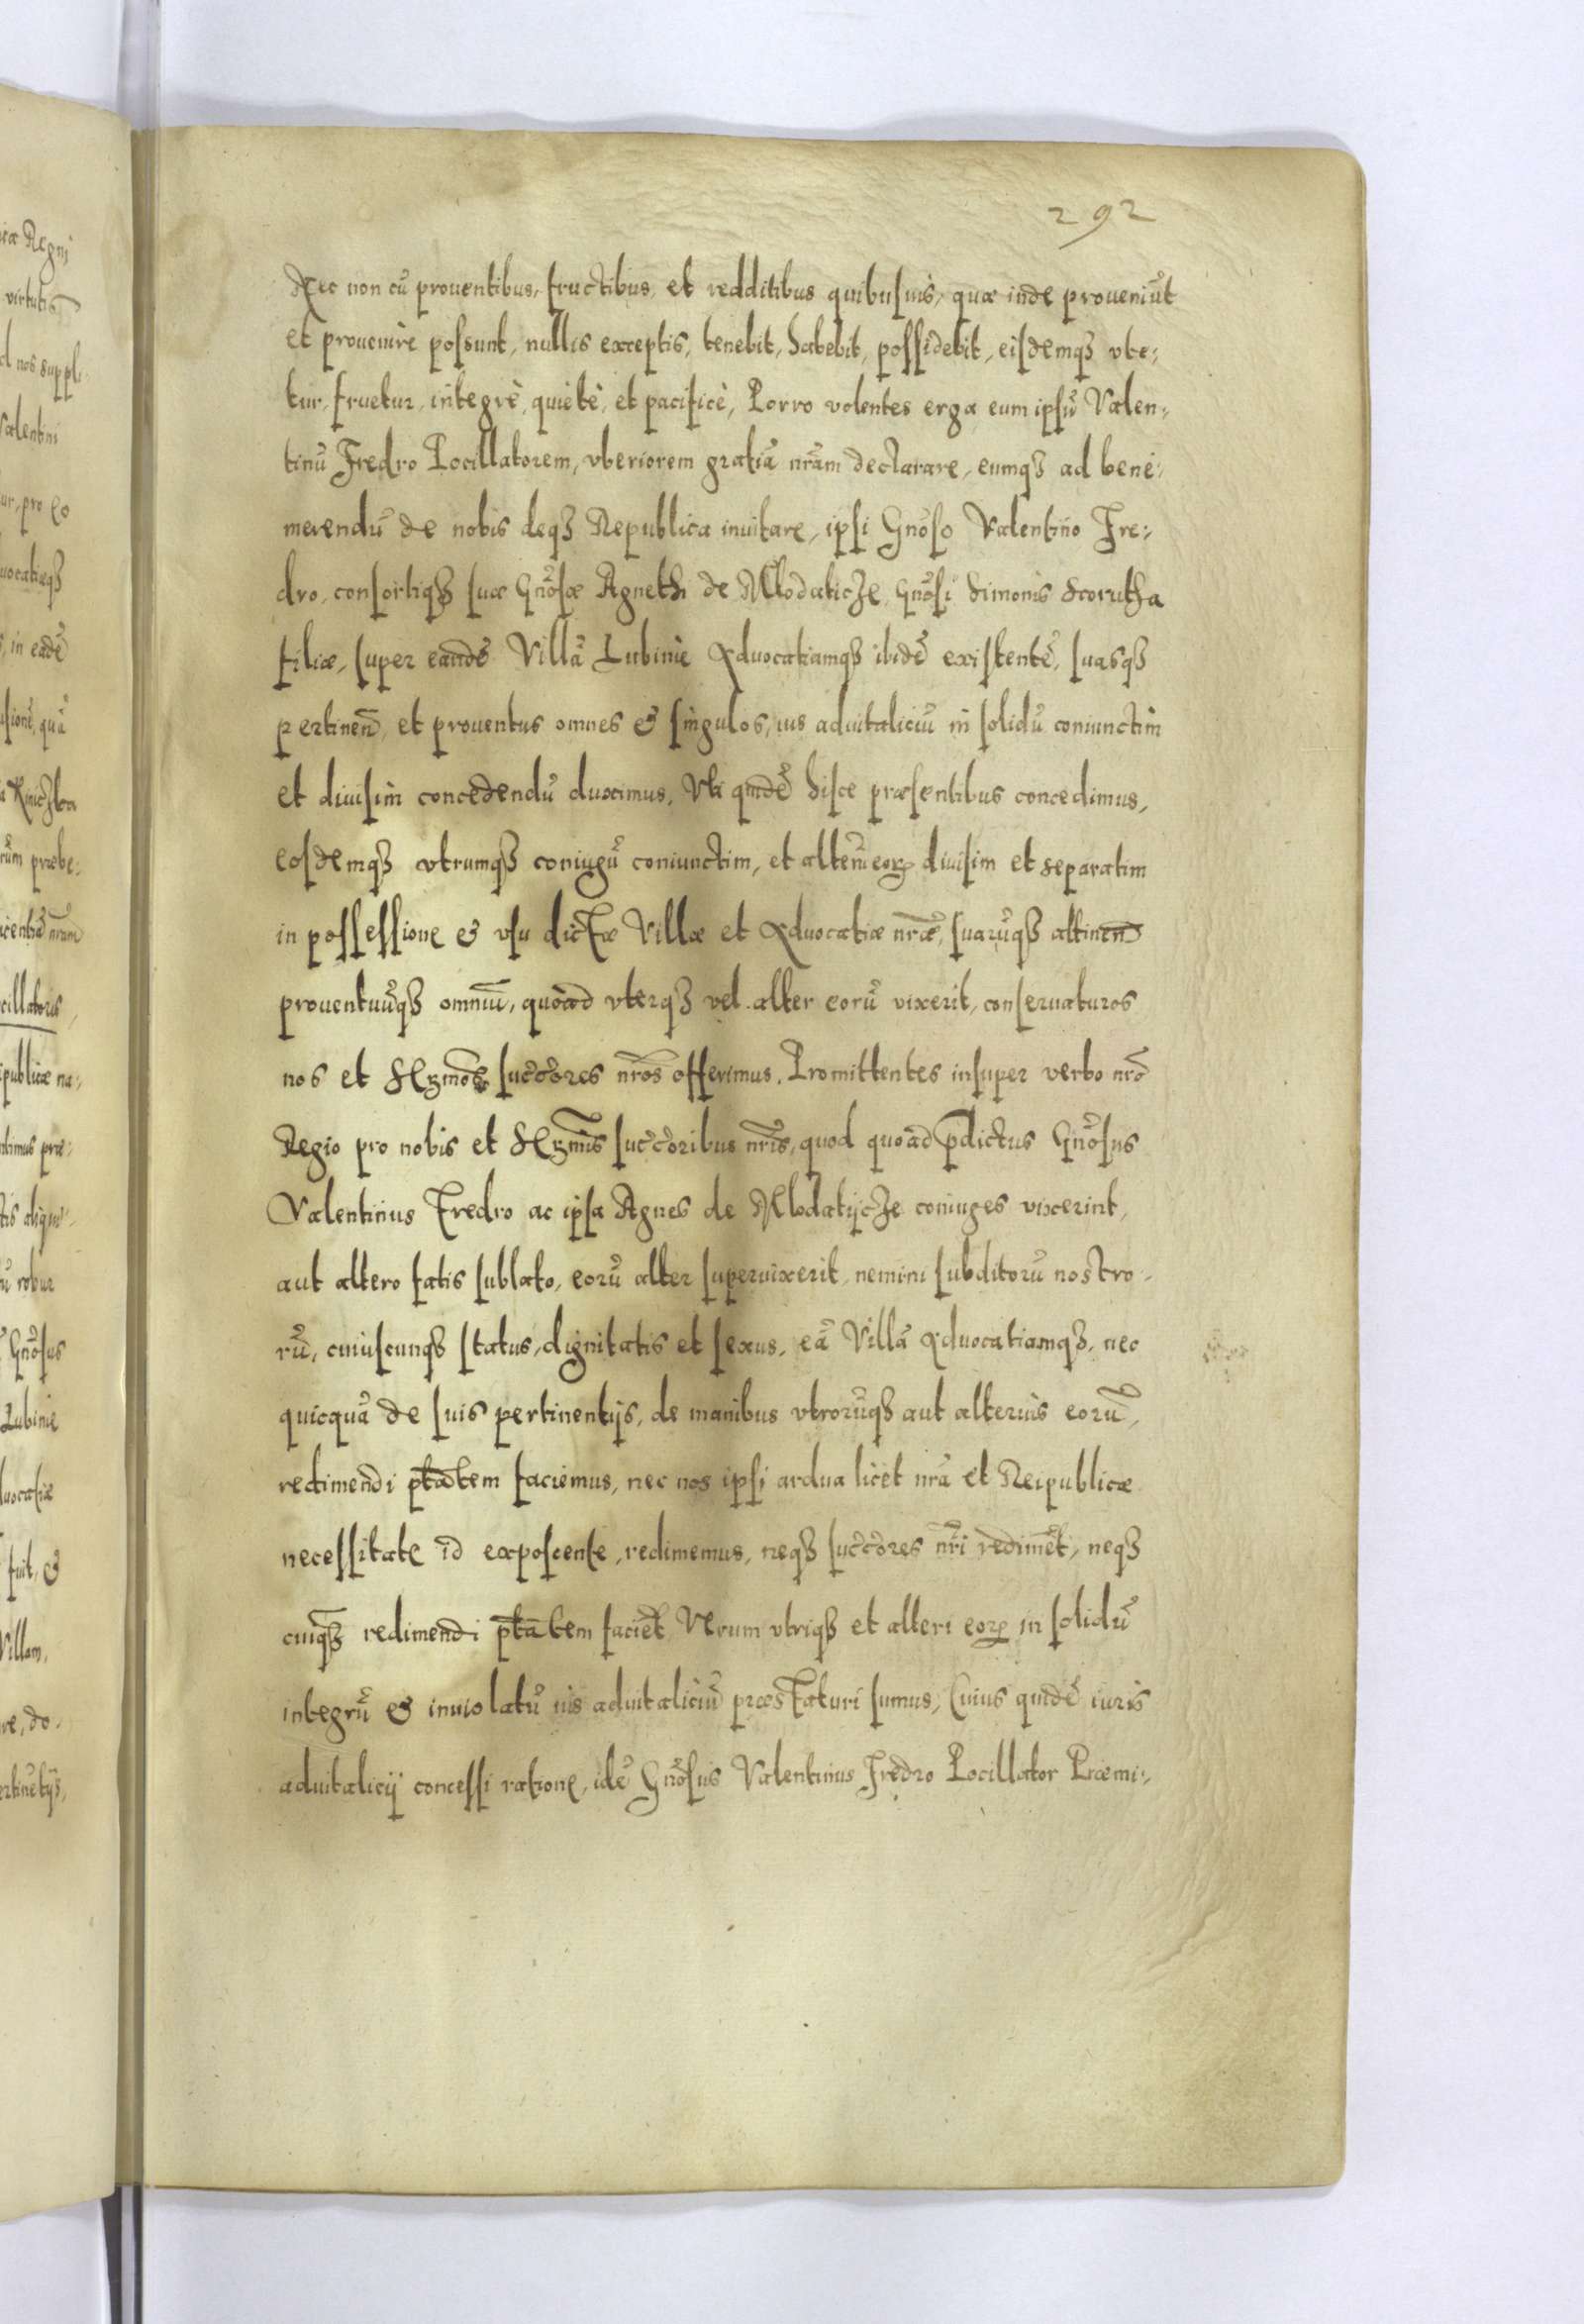 292
Nec non cū prouentibus, fructibus, et redditibus quibusuis, quæ inde proueniūt
et prouenire possunt, nullis exceptis, tenebit, habebit, possidebit, eisdemqȝ vte:
tur, fruetur, integrè, quietè, et pacificè, Porro volentes erga eum ipsū Valen:
tinū Fredro Pocillatorem, vberiorem gratiā nr̄am declarare, eumqȝ ad bene:
merendū de nobis deqȝ Republica inuitare, ipsi Gn̄oso Valentino Fre:
dro, consortiqȝ suæ Gn̄osæ Agneth de Mlodaticze, Gn̄osi Simonis Scorutha
filiæ, super eandē Villā Lubinie Aduocatiamqȝ ibidē existentē, suasqȝ
pertinen̄, et prouentus omnes & singulos, ius aduitaliciū in solidū coniunctim
et diuisim concedendū duximus, Vti quidē hisce præsentibus concedimus,
eosdemqȝ vtrumqȝ coniugū coniunctim, et alterū eorꝝ diuisim et separatim
in possessione & vsu dictæ Villæ et Aduocatiæ nr̄æ, suarūqȝ attinen̄
prouentuūqȝ omniū, quoad vterqȝ vel alter eorū vixerit, conseruaturos
nos et Serm̄os succ̄ores nr̄os offerimus. Promittentes insuper verbo nr̄o
Regio pro nobis et Serm̄is succ̄oribus nr̄is, quod quoad p̄dictus Gn̄osus
Valentinus Fredro ac ipsa Agnes de Mlodatijcze coniuges vixerint,
aut altero fatis sublato, eorū alter superuixerit, nemini subditorū nostro:
rū, cuiuscunqȝ status, dignitatis et sexus, eā Villā Aduocatiamqȝ, nec
quicquā de suis pertinentijs, de manibus vtrorūqȝ aut alterius eorū,
redimendi p̄tātem faciemus, nec nos ipsi ardua licet nr̄a et Reipublicæ
necessitate id exposcente, redimemus, neqȝ succ̄ores nr̄i redimēt, neqȝ
cuiqȝ redimendi p̄tātem faciēt, Verum vtriqȝ et alteri eorꝝ in solidū
integrū & inuiolatū ius aduitaliciū præstaturi sumus, Cuius quidē iuris
aduitalicij concessi ratione, idē Gn̄osus Valentinus Fredro Pocillator Præmi: